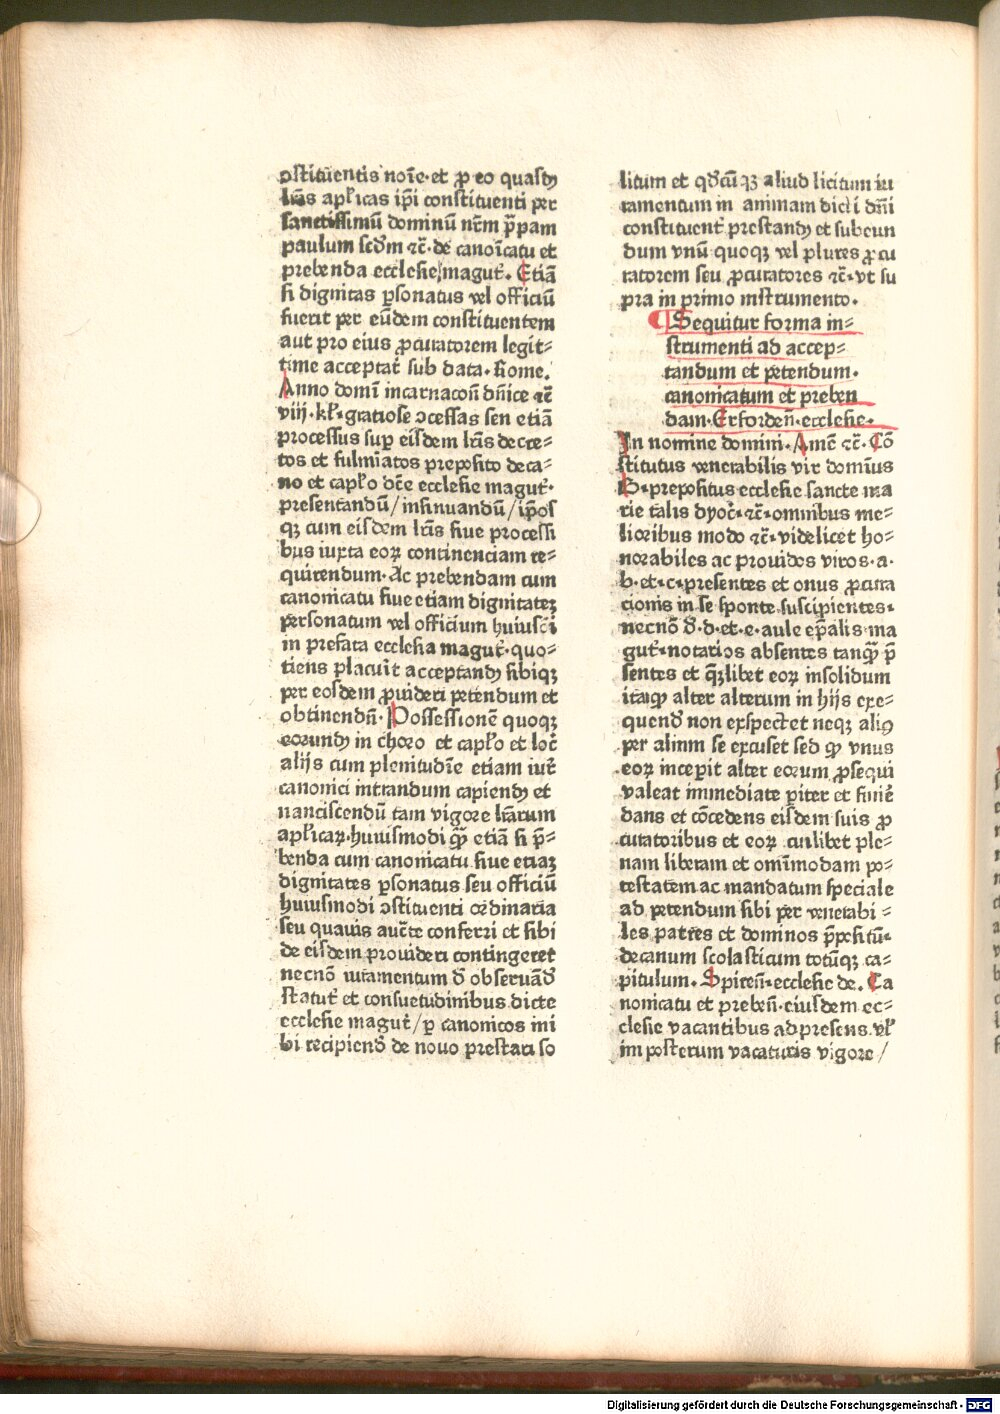 ↄſtituentis noīe·et ꝓ eo quaſdꝫ
lr̄as apl'icas ip̄i conſtituenti per
ſanctiſſimū dominū nr̄m p̄pam
paulum ſcd̄m ⁊c̄·de canoīcatu et
prebenda eccleſie magut̄· Etiā
ſi dignitas ꝑſonatus vel officiū
fuerit per eūdem conſtituentem
aut pro eius ꝓcuratorem legit⸗
time acceptat̄ ſub data·Rome·
Anno domī incarnacōn̄ dn̄ice ⁊c̄
viij·kl'·gratioſe ↄceſſas ſen etiā
proceſſus ſuꝑ eiſdem lr̄is decre⸗
tos et fulmīatos prepoſito deca⸗
no et capl'o dc̄e eccleſie magut̄·
preſentandū/inſinuandū/ip̄oſ
qꝫ cum eiſdem lr̄is ſiue proceſſi
bus iuxta eoꝝ continenciam re⸗
quirendum·Ac prebendam cum
canonicatu ſiue etiam dignitateꝫ
perſonatum vel officium huiuſcī
in prefata eccleſia magut̄·quo⸗
tiens placuīt acceptandꝫ ſibiqꝫ
per eoſdem ꝓuideri petendum et
obtinendn̄·Poſſeſſionē quoqꝫ
eorundꝫ in choro et capl'o et loc̄
alijs cum plenitudīe etiam iur̄
canonici intrandum capiendꝫ et
nanciſcendū tam vigore lr̄arum
apl'icaꝝ·huiuſmodi qꝫ etiā ſi p̄⸗
benda cum canonicatu ſiue etiaꝫ
dignitates ꝑſonatus ſeu officiū
huiuſmodi ↄſtituenti ordinaria
ſeu quauis auct̄e conferri et ſibi
de eiſdem prouideri contingeret
necnō iuramentum d̄ obſeruād̄
ſtatut̄ et conſuetudinibus dicte
eccleſie magut̄/ꝑ canonicos ini
bi recipiend̄ de nouo preſtari ſo
litum et qd̄cūqꝫ aliud licitum iu
ramentum in animam dicti dn̄i
conſtituent̄ preſtandꝫ et ſubeun
dum vnū quoqꝫ vel plures ꝓcu
ratorem ſeu ꝓcuratores ⁊c̄·vt ſu
pra in primo inſtrumento·
¶Sequitur forma in⸗
ſtrumenti ad accep⸗
tandum et petendum·
canonicatum et preben
dam·Erforden̄·eccleſie·
In nomine domini·Amē ⁊c̄·Cō
ſtitutus venerabilis vir domīus
B·prepoſitus eccleſie ſancte ma
rie talis dyoc̄·⁊c̄·omnibus me⸗
lioribus modo ⁊c̄·videlicet ho⸗
norabiles ac prouidos viros·a·
b·et·c·preſentes et onus ꝓcura
cionis in ſe ſponte ſuſcipientes·
necnō d̄·d·et·e·aule ep̄alis ma
gut̄·notarios abſentes tanqꝫ p̄
ſentes et qꝫlibet eoꝝ inſolidum
itaqꝫ alter alterum in hijs exe⸗
quend̄ non exſpectet neqꝫ aliꝰ
per alinm ſe excuſet ſed qꝫ vnus
eoꝝ inceperit alter eorum ꝓſequi
valeat immediate ꝑiter et finiē
dans et cōcedens eiſdem ſuis ꝓ
curatoribus et eoꝝ cuilibet ple⸗
nam liberam et omīmodam po⸗
teſtatem ac mandatum ſpeciale
ad petendum ſibi per venerabi⸗
les patres et dominos p̄poſitū·
decanum ſcolaſticum totūqꝫ ca⸗
pitulum·Spiren̄·eccleſie de·Ca
nonicatu et preben̄·eiuſdem ec⸗
cleſie vacantibus ad preſens·vl'
im poſterum vacaturis vigore/
Digitalisierung gefördert durch die Deutsche Forschungsgemeinschaft - DFG